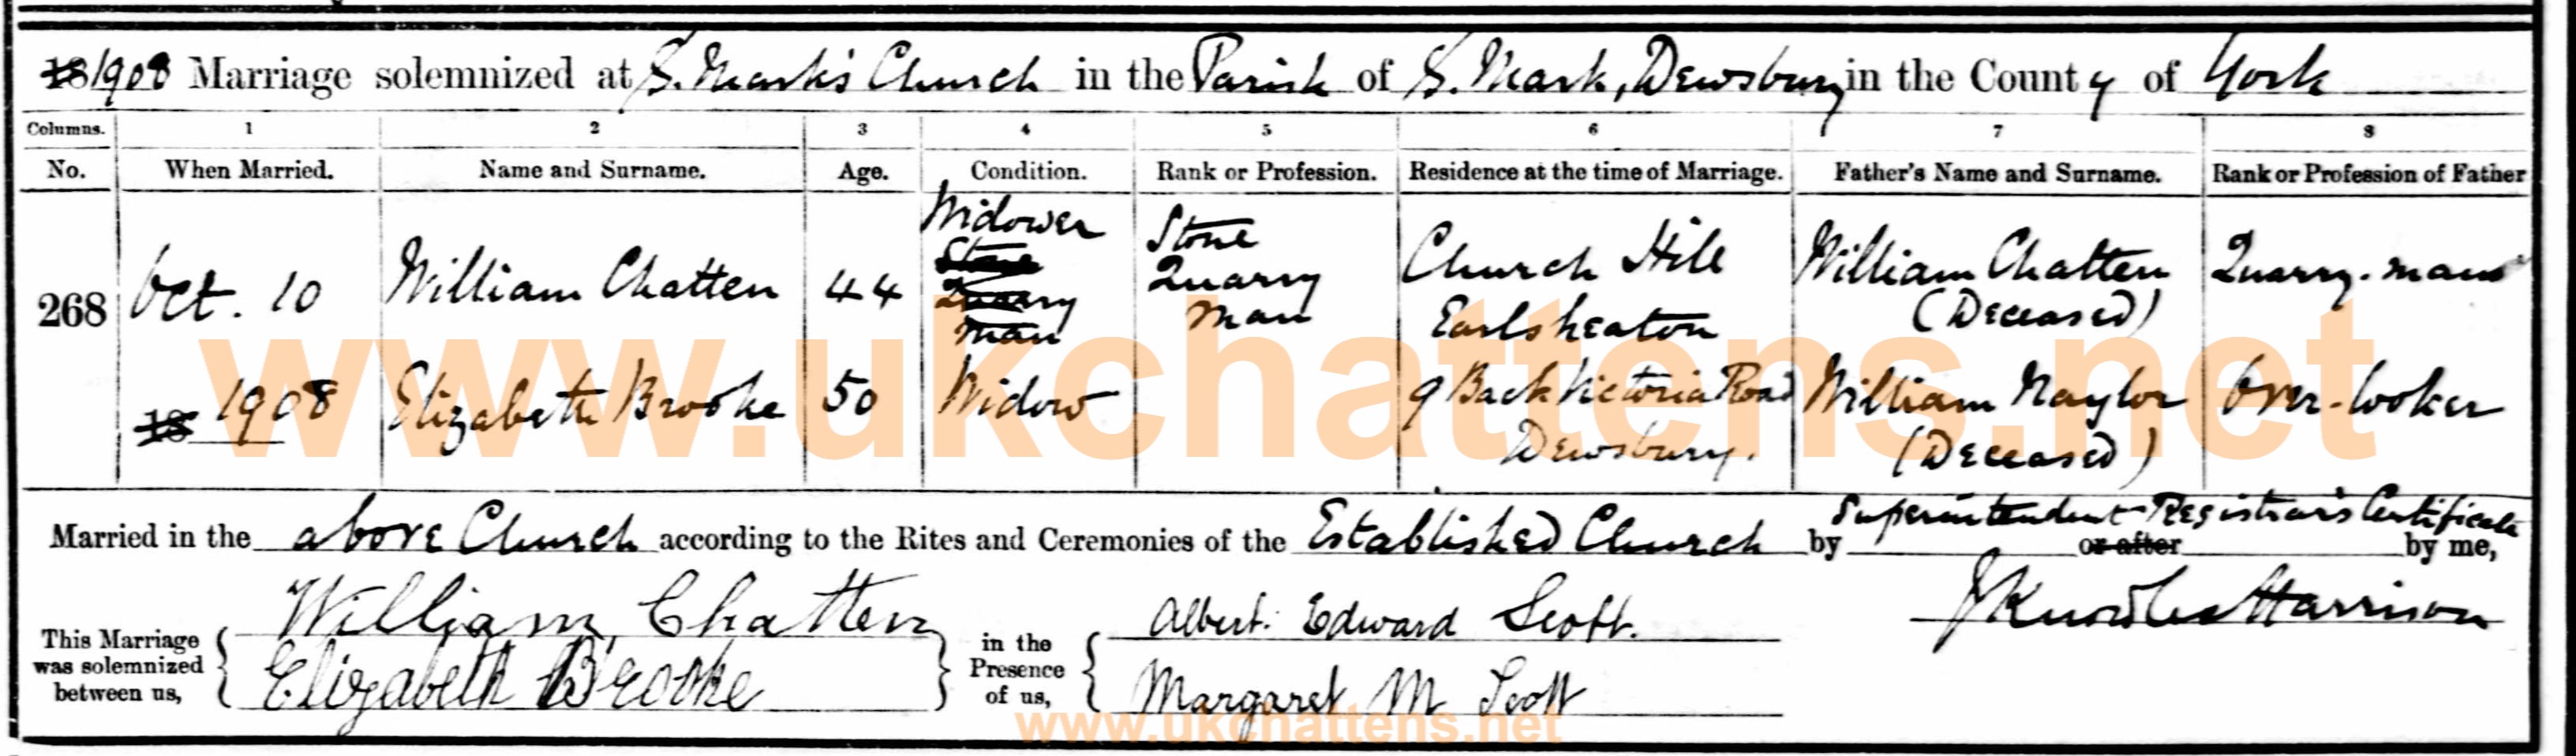 18 1908 Marriage solemnized at S. Mark's Church in the Parish of S. Mark, Dewsbury in the County of York
Columns. 1 2 3 4 5 6 7 8
No. When Married. Name and Surname. Age. Condition. Rank or Profession. Residence at the time of Marriage. Father's Name and Surname. Rank or Profession of Father
268 Oct. 10 William Chatten 44 Widower Stone Quarry Man Stone Quarry Man Church Hill Earlsheaton William Chatten (Deceased) Quarry-man
18 1908 Elizabeth Brooke 50 Widow 9 Back Victoria Road Dewsbury. William Naylor (Deceased) Over-looker
Married in the above Church according to the Rites and Ceremonies of the Established Church by Superintendent Registrar's Certificate or after by me,
This Marriage was solemnized between us, William Chatten Elizabeth Brooke in the Presence of us, Albert Edward Scott. Margaret M Scott
J Knowles Harrison
www.ukchattens.net
www.ukchattens.net